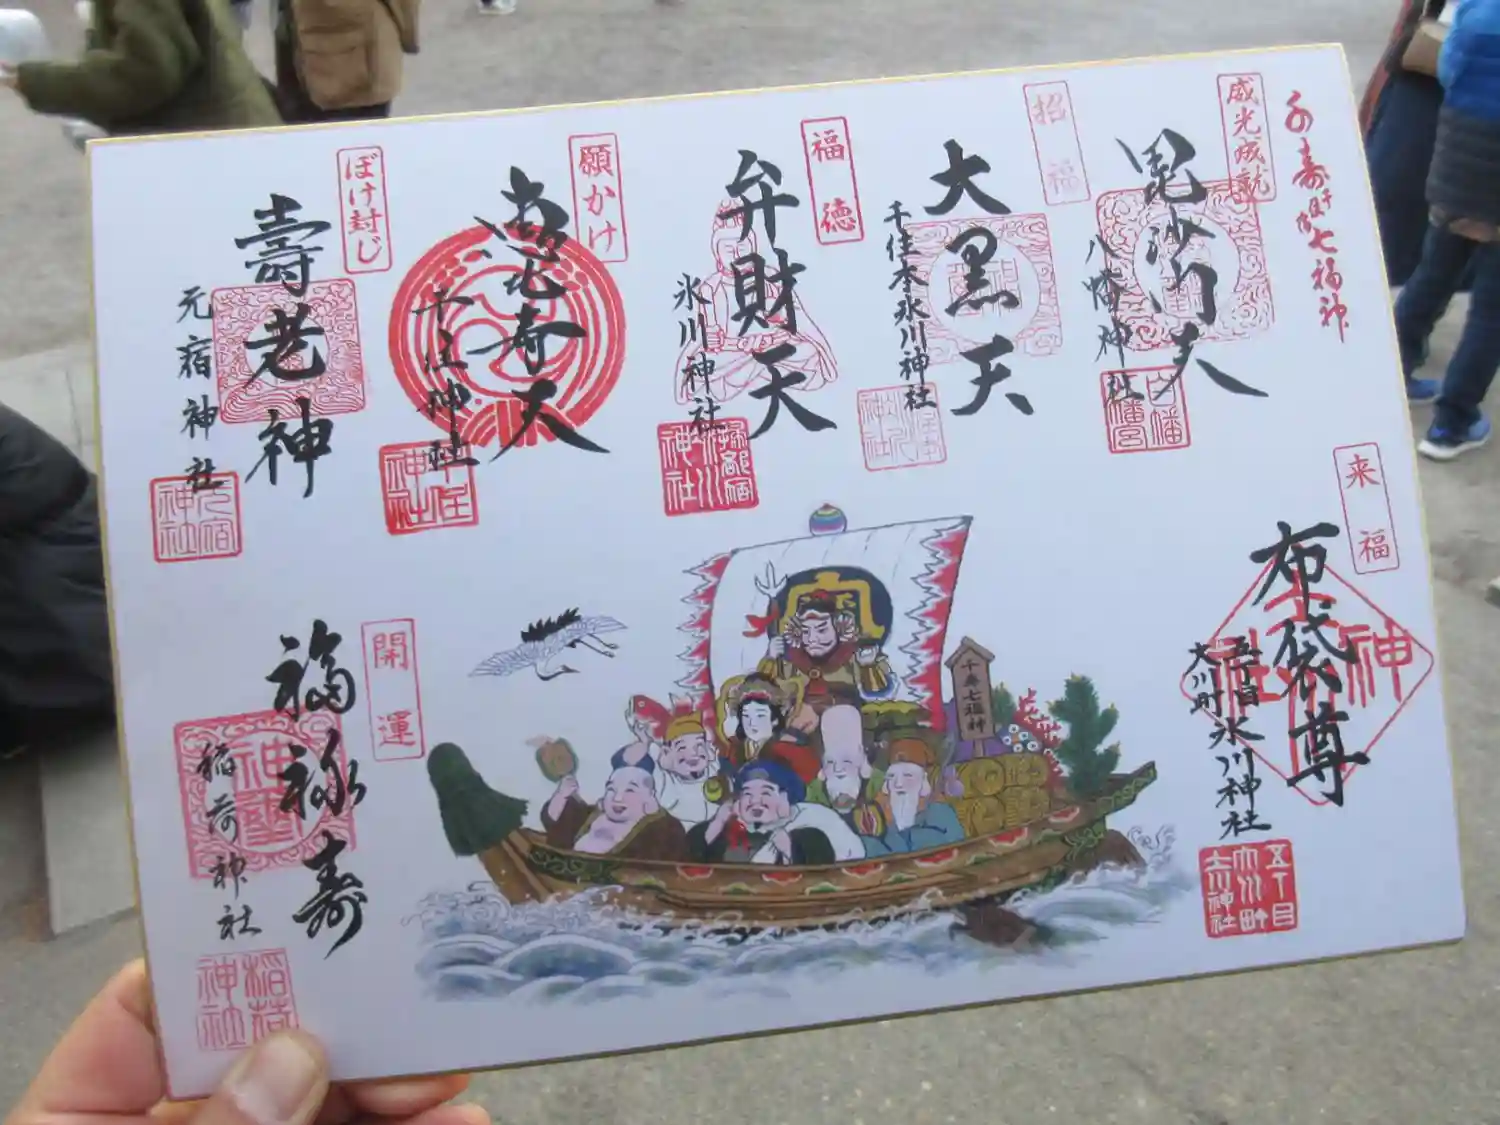 千寿七福神
威光成就
毘沙門天
八幡神社
八幡宮
招福
大黒天
千住本氷川神社
福徳
弁財天
氷川神社
氷川神社
願かけ
恵比寿天
千住神社
千住神社
ぼけ封じ
壽老神
元宿神社
元宿神社
来福
布袋尊
五丁目
大川町氷川神社
神社
五丁目
大川町
氷川神社
開運
福禄寿
稲荷神社
稲荷神社
千寿七福神